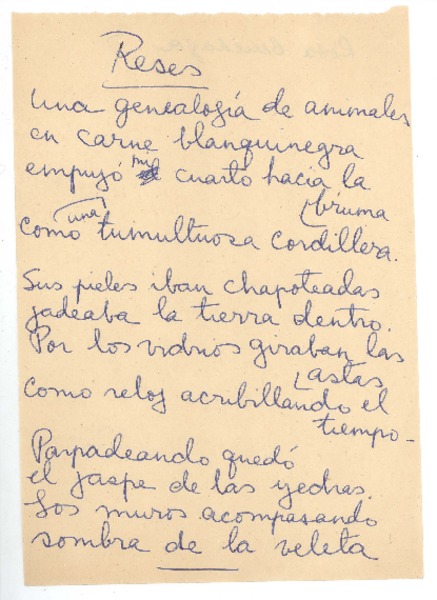 Reses
Una genealogía de animales
en carne blanquinegra
empujó mi cuarto hacia la
bruma
como una tumultuosa cordillera.
Sus pieles iban chapoteadas
jadeaba la tierra dentro.
Por los vidrios giraban las
astas
como reloj acribillando el
tiempo-
Parpadeando quedó
el jaspe de las yedras.
Los muros acompasando
sombra de la veleta